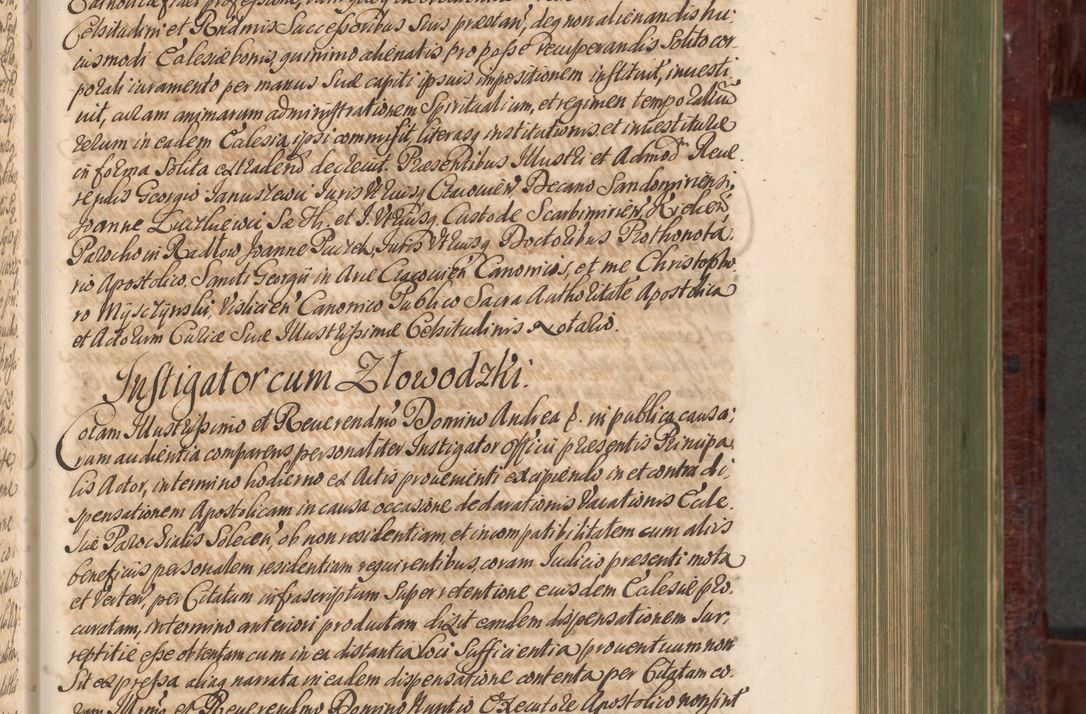 Catholicæ fidei professione,
Celsitudini et Rndmis Successoribus Suis præstari, deq non alienandis hu:
iusmodi Ecclesiæ bonis, quinimo alienatis pro posse recuperandis Solito cor:
porali iuramento per manus Suæ capiti ipsius impositionem instituit, investi:
uit, curam animarum administrationem Spiritualium, et regimen temporaliũ
rerum in eadem Ecclesia ipsi commisit, literasq institutionis et investituræ
in forma Solita extradend decreuit. Præsentibus Illustri et Admod Reue:
rendis Georgio Januszewic Juris Vtriusq Cracovien Decano Sandomiriensi,
Joanne Ss Th. et J. Vtriusq Custode Scarbimirien, Kielcen
Parocho in Radłow Joanne Juris Vtriusq Doctoribus Prothonota:
rio Apostolico, Sancti Georgii in Arce Cracovien Canonicis, et me Christopho:
ro Mysczynski, Vislicien Canonico Publico Sacra Authoritate Apostolica
et Actorum Curiæ Suæ Illustrissimæ Celsitudinis Notario.
Instigator cum Złowodzki.
Coram Illustrissimo et Reuerendmo Domino Andrea E. in publica causa:
rum audientia comparens personaliter Instigator Officii præsentis Principa:
lis Actor, in termino hodierno ex Actis proueniente excipiendo in et contra di:
spensationem Apostolicam in causa occasione declarationis Vacationis Eccle:
siæ Parochialis Solecen, ob non residentiam, et incompatibilitatem cum aliis
beneficiis personalem residentiam requirentibus, coram Judicio præsenti mota
et Verten, per Citatum infrascriptum Super retentione eiusdem Ecclesiæ pro:
curatam, in termino anteriori productam dixit eandem dispensationem Sur:
reptitie esse obtentam cum in ea distantia loci Sufficientia prouentuum non
Sit expressa aliaq narrata in eadem dispensatione contenta per Citatum co:
ram Illrmo et Reuerendmo Domino Nuntio Executore Apostolico non sint